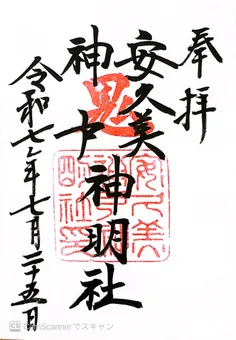 奉拝
安久美
神戸神明社
令和七年七月二十五日
安久美
神戸神
明社印
CS CamScannerでスキャン